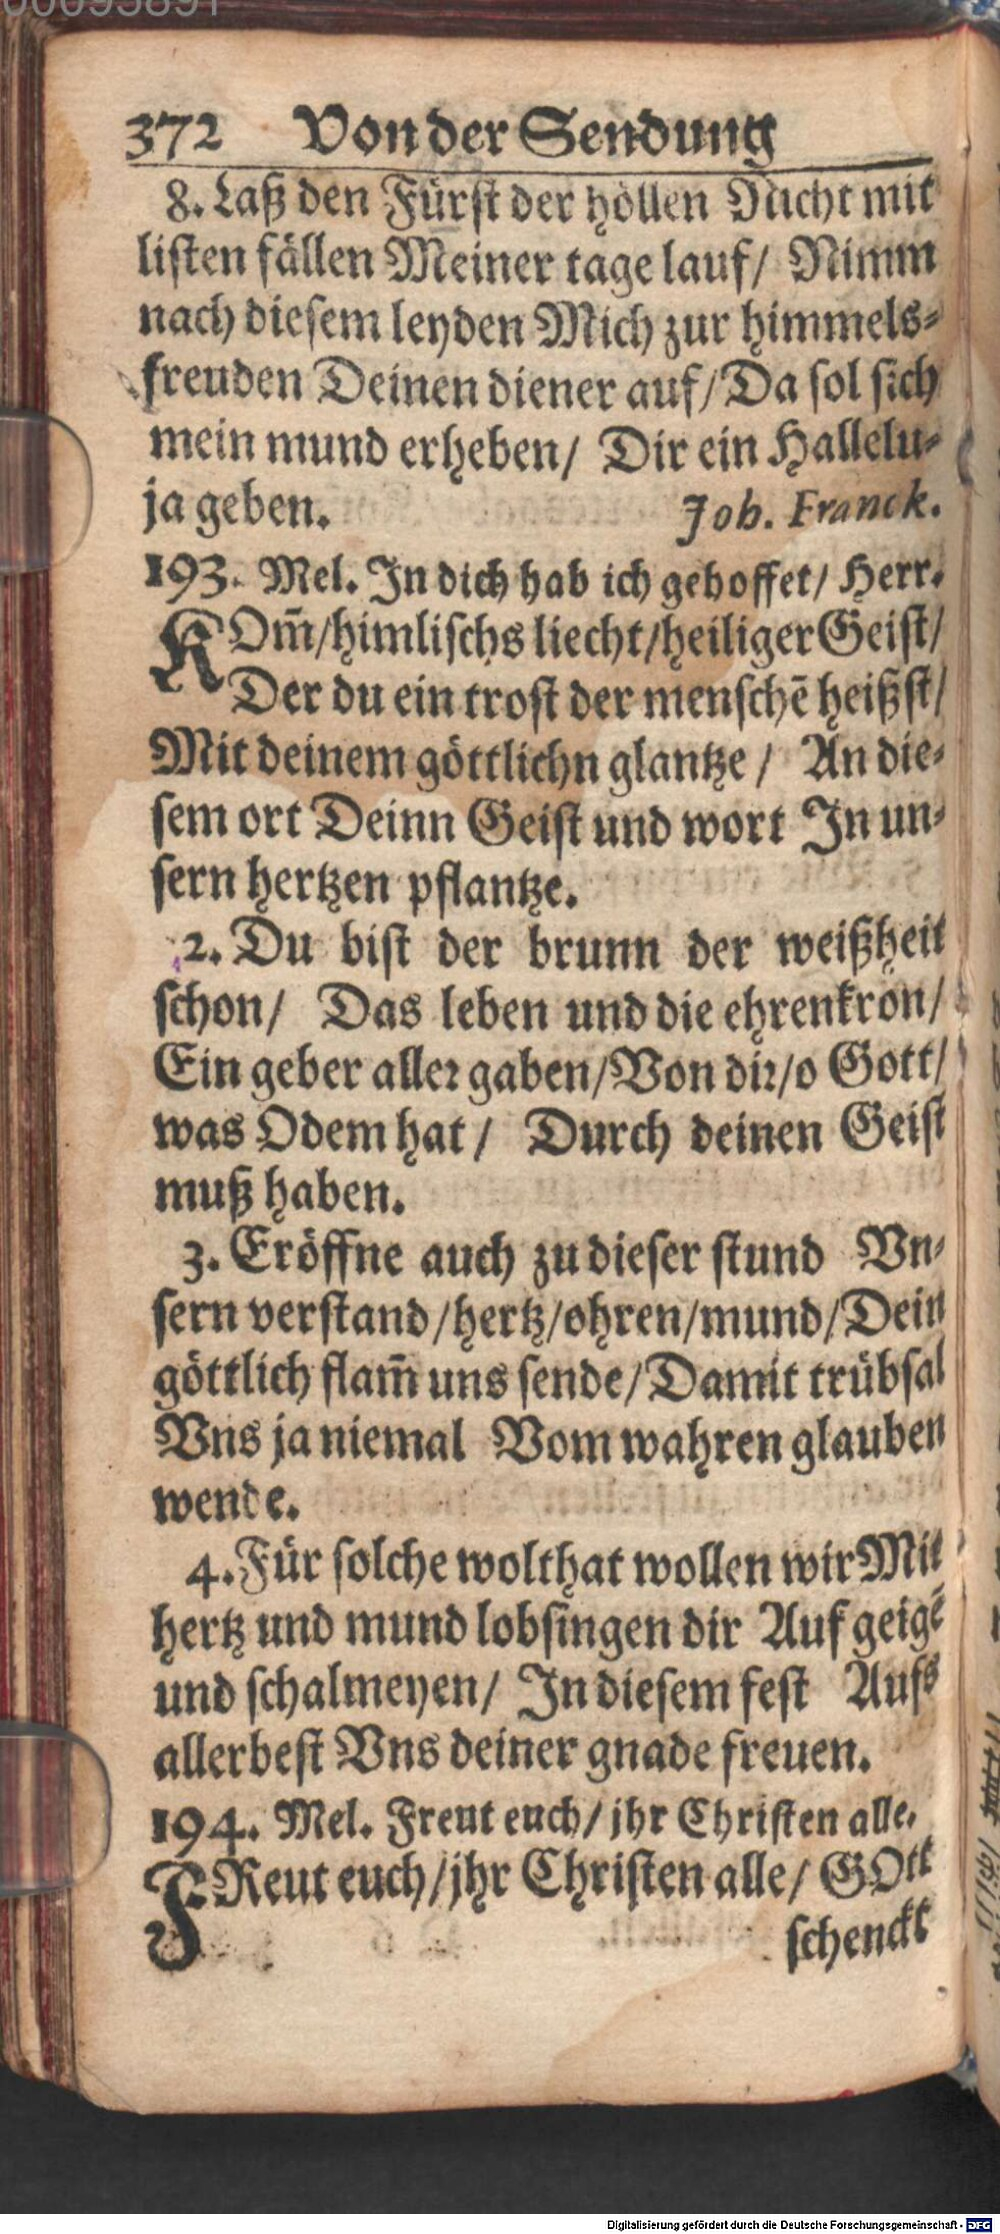 00095891
372 Von der Sendung
8. Laß den Fürst der höllen Nicht mit
listen fällen Meiner tage lauf/ Nimm
nach diesem leyden Mich zur himmels-
freuden Deinen diener auf/ Da sol sich
mein mund erheben/ Dir ein Hallelu-
ja geben. Joh. Franck.
193. Mel. In dich hab ich gehoffet/ Herr.
KOm̃/himlischs liecht/heiliger Geist/
Der du ein trost der menschē heißst/
Mit deinem göttlichn glantze / An die-
sem ort Deinn Geist und wort In un-
sern hertzen pflantze.
2. Du bist der brunn der weißheit
schon/ Das leben und die ehrenkron/
Ein geber aller gaben/Von dir/o Gott/
was Odem hat / Durch deinen Geist
muß haben.
3. Eröffne auch zu dieser stund Vn-
sern verstand/hertz/ohren/mund/Dein
göttlich flam̃ uns sende/Damit trübsal
Vns ja niemal Vom wahren glauben
wende.
4. Für solche wolthat wollen wir Mit
hertz und mund lobsingen dir Auf geigē
und schalmeyen/ In diesem fest Aufs
allerbest Vns deiner gnade freuen.
194. Mel. Freut euch/ jhr Christen alle.
FReut euch/jhr Christen alle/ GOtt
schenckt
Digitalisierung gefördert durch die Deutsche Forschungsgemeinschaft - DFG